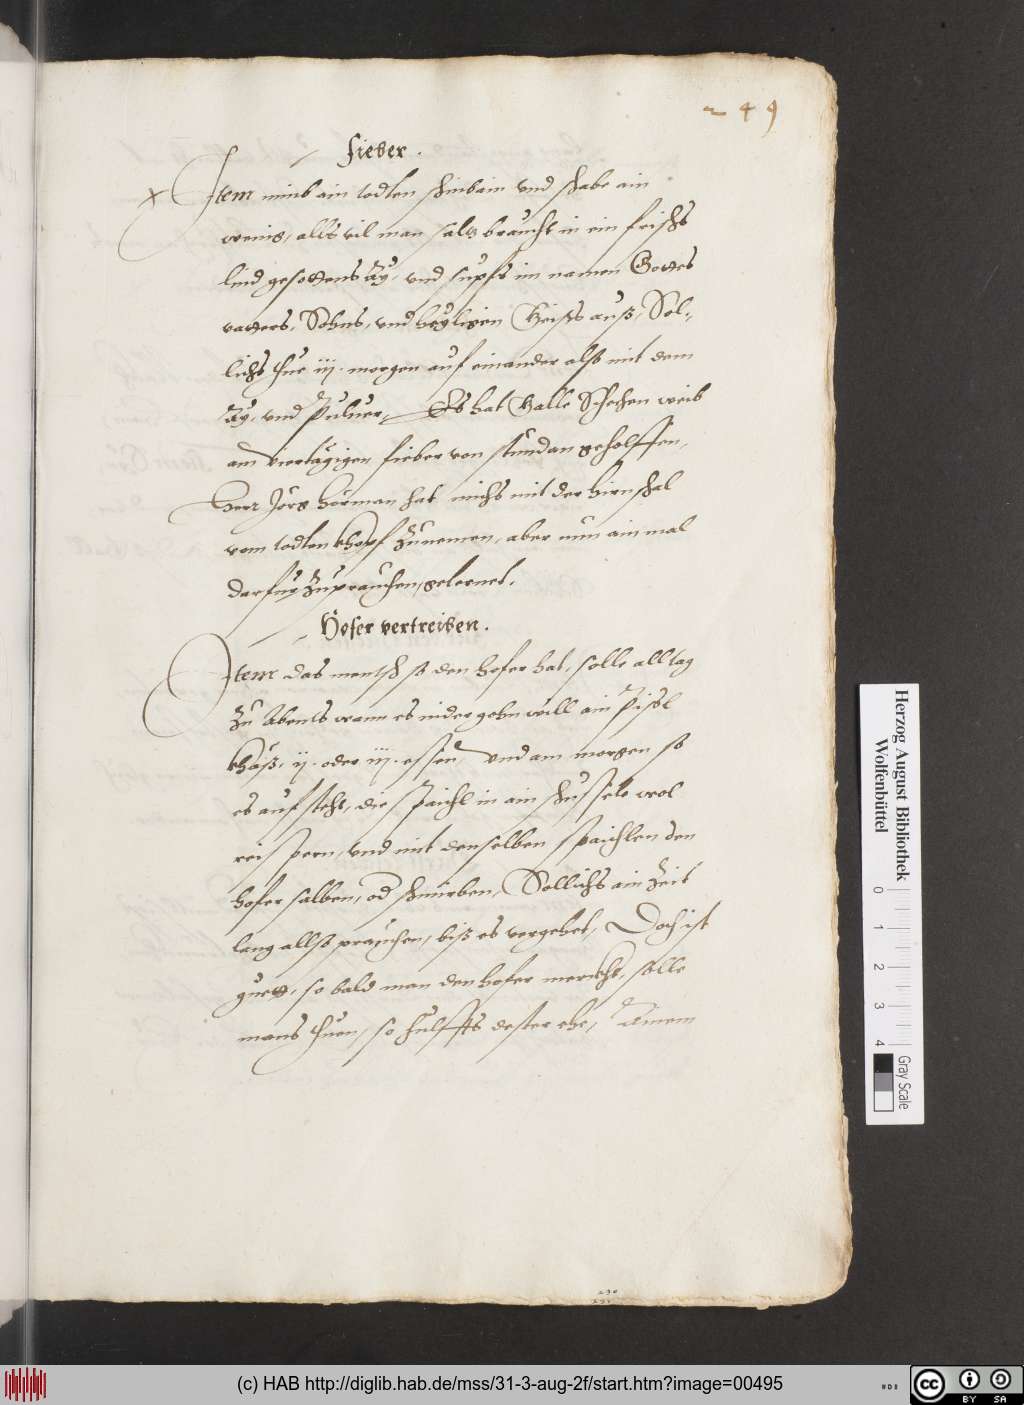 249
Fieber.
x Item nimb ain todten schinbain vnd schabe ain
wenig, alls vil man saltz braucht in ein frischs
lind gesottens Ay, vnd supfs im namen Gottes
vatters, Sohns, vnd heyligen Geists auß, Sol-
lichs thue iij. morgen auf einander also mit dem
Ay, vnd Puluer, Es hat Galle weib
am viertägigen fieber von stundan geholffen,
Herr Jörg Hörman hat michs mit der hirnschal
vom todten khopf zunemen, aber nun ain mal
darfur zuprauchen, gelernet.
Hofer vertreiben.
Item das mentsch so den hofer hat, solle all tag
zu Abents wann es nider gehn will ain
khäß, ij. oder iij. essen, vnd am morgen so
es aufsteht, die spaichl in ain schussele wol
reispern, vnd mit denselben spaichlen den
hofer salben, od schmirben, Sollichs ain Zeit
lang allso prauchen, biß es vergehet, Doch ist
guett, so bald man den hofer merckht, solle
mans thuen, so hulffts dester ehe, Amem
290
291
Herzog August Bibliothek
Wolfenbüttel
0 1 2 3 4
Gray Scale
(c) HAB http://diglib.hab.de/mss/31-3-aug-2f/start.htm?image=00495
cc BY SA